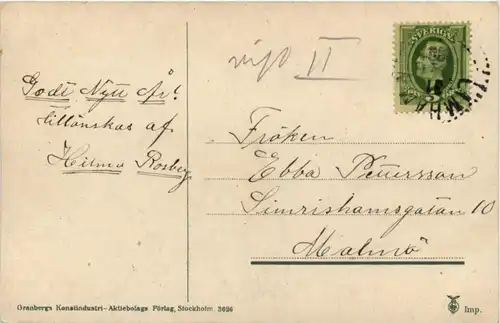 visit II
SVERIGE
Godt Nytt År!
tillönskas af
Hilma Rosberg
Fröken
Ebba Pettersson
Simrishamsgatan 10
Malmö
Granbergs Konstindustri-Aktiebolags Förlag, Stockholm 3626
Imp.